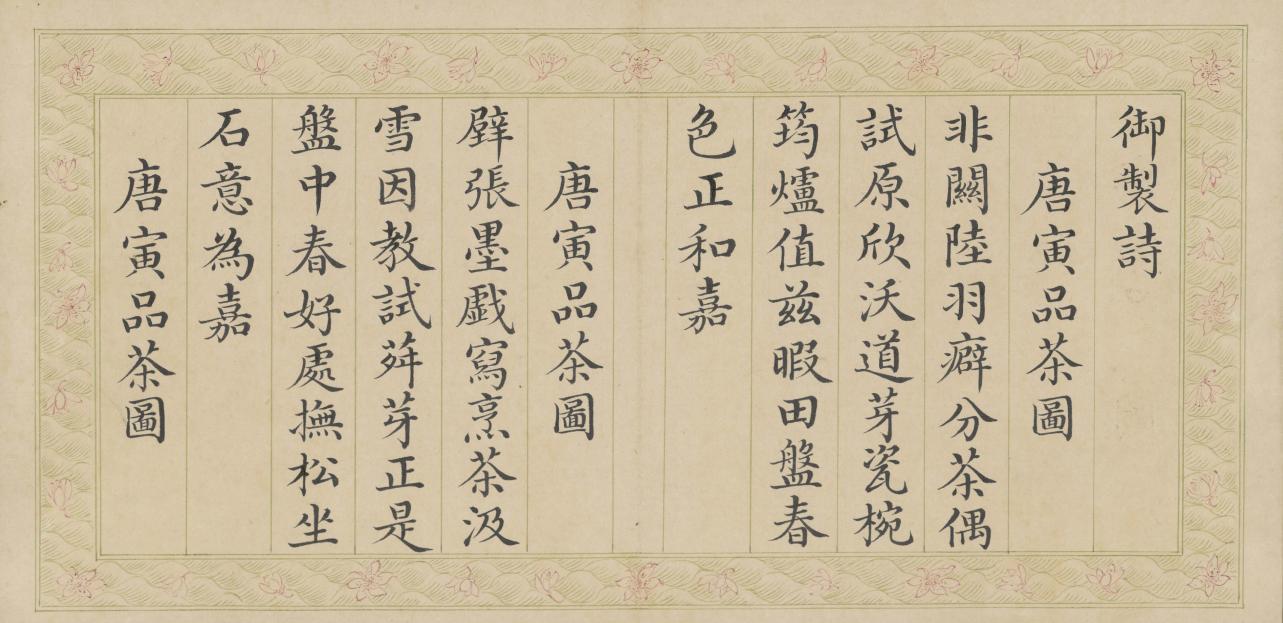 御製詩
唐寅品茶圖
非關陸羽癖分茶偶
試原欣沃道芽瓷椀
筠爐值茲暇田盤春
色正和嘉
唐寅品茶圖
壁張墨戲寫烹茶汲
雪因教試荈芽正是
盤中春好處撫松坐
石意為嘉
唐寅品茶圖